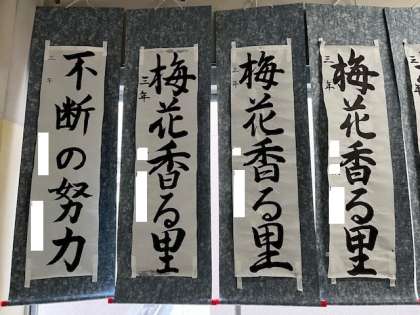 不断の努力
三年
梅花香る里
三年
梅花香る里
三年
梅花香る里
三年